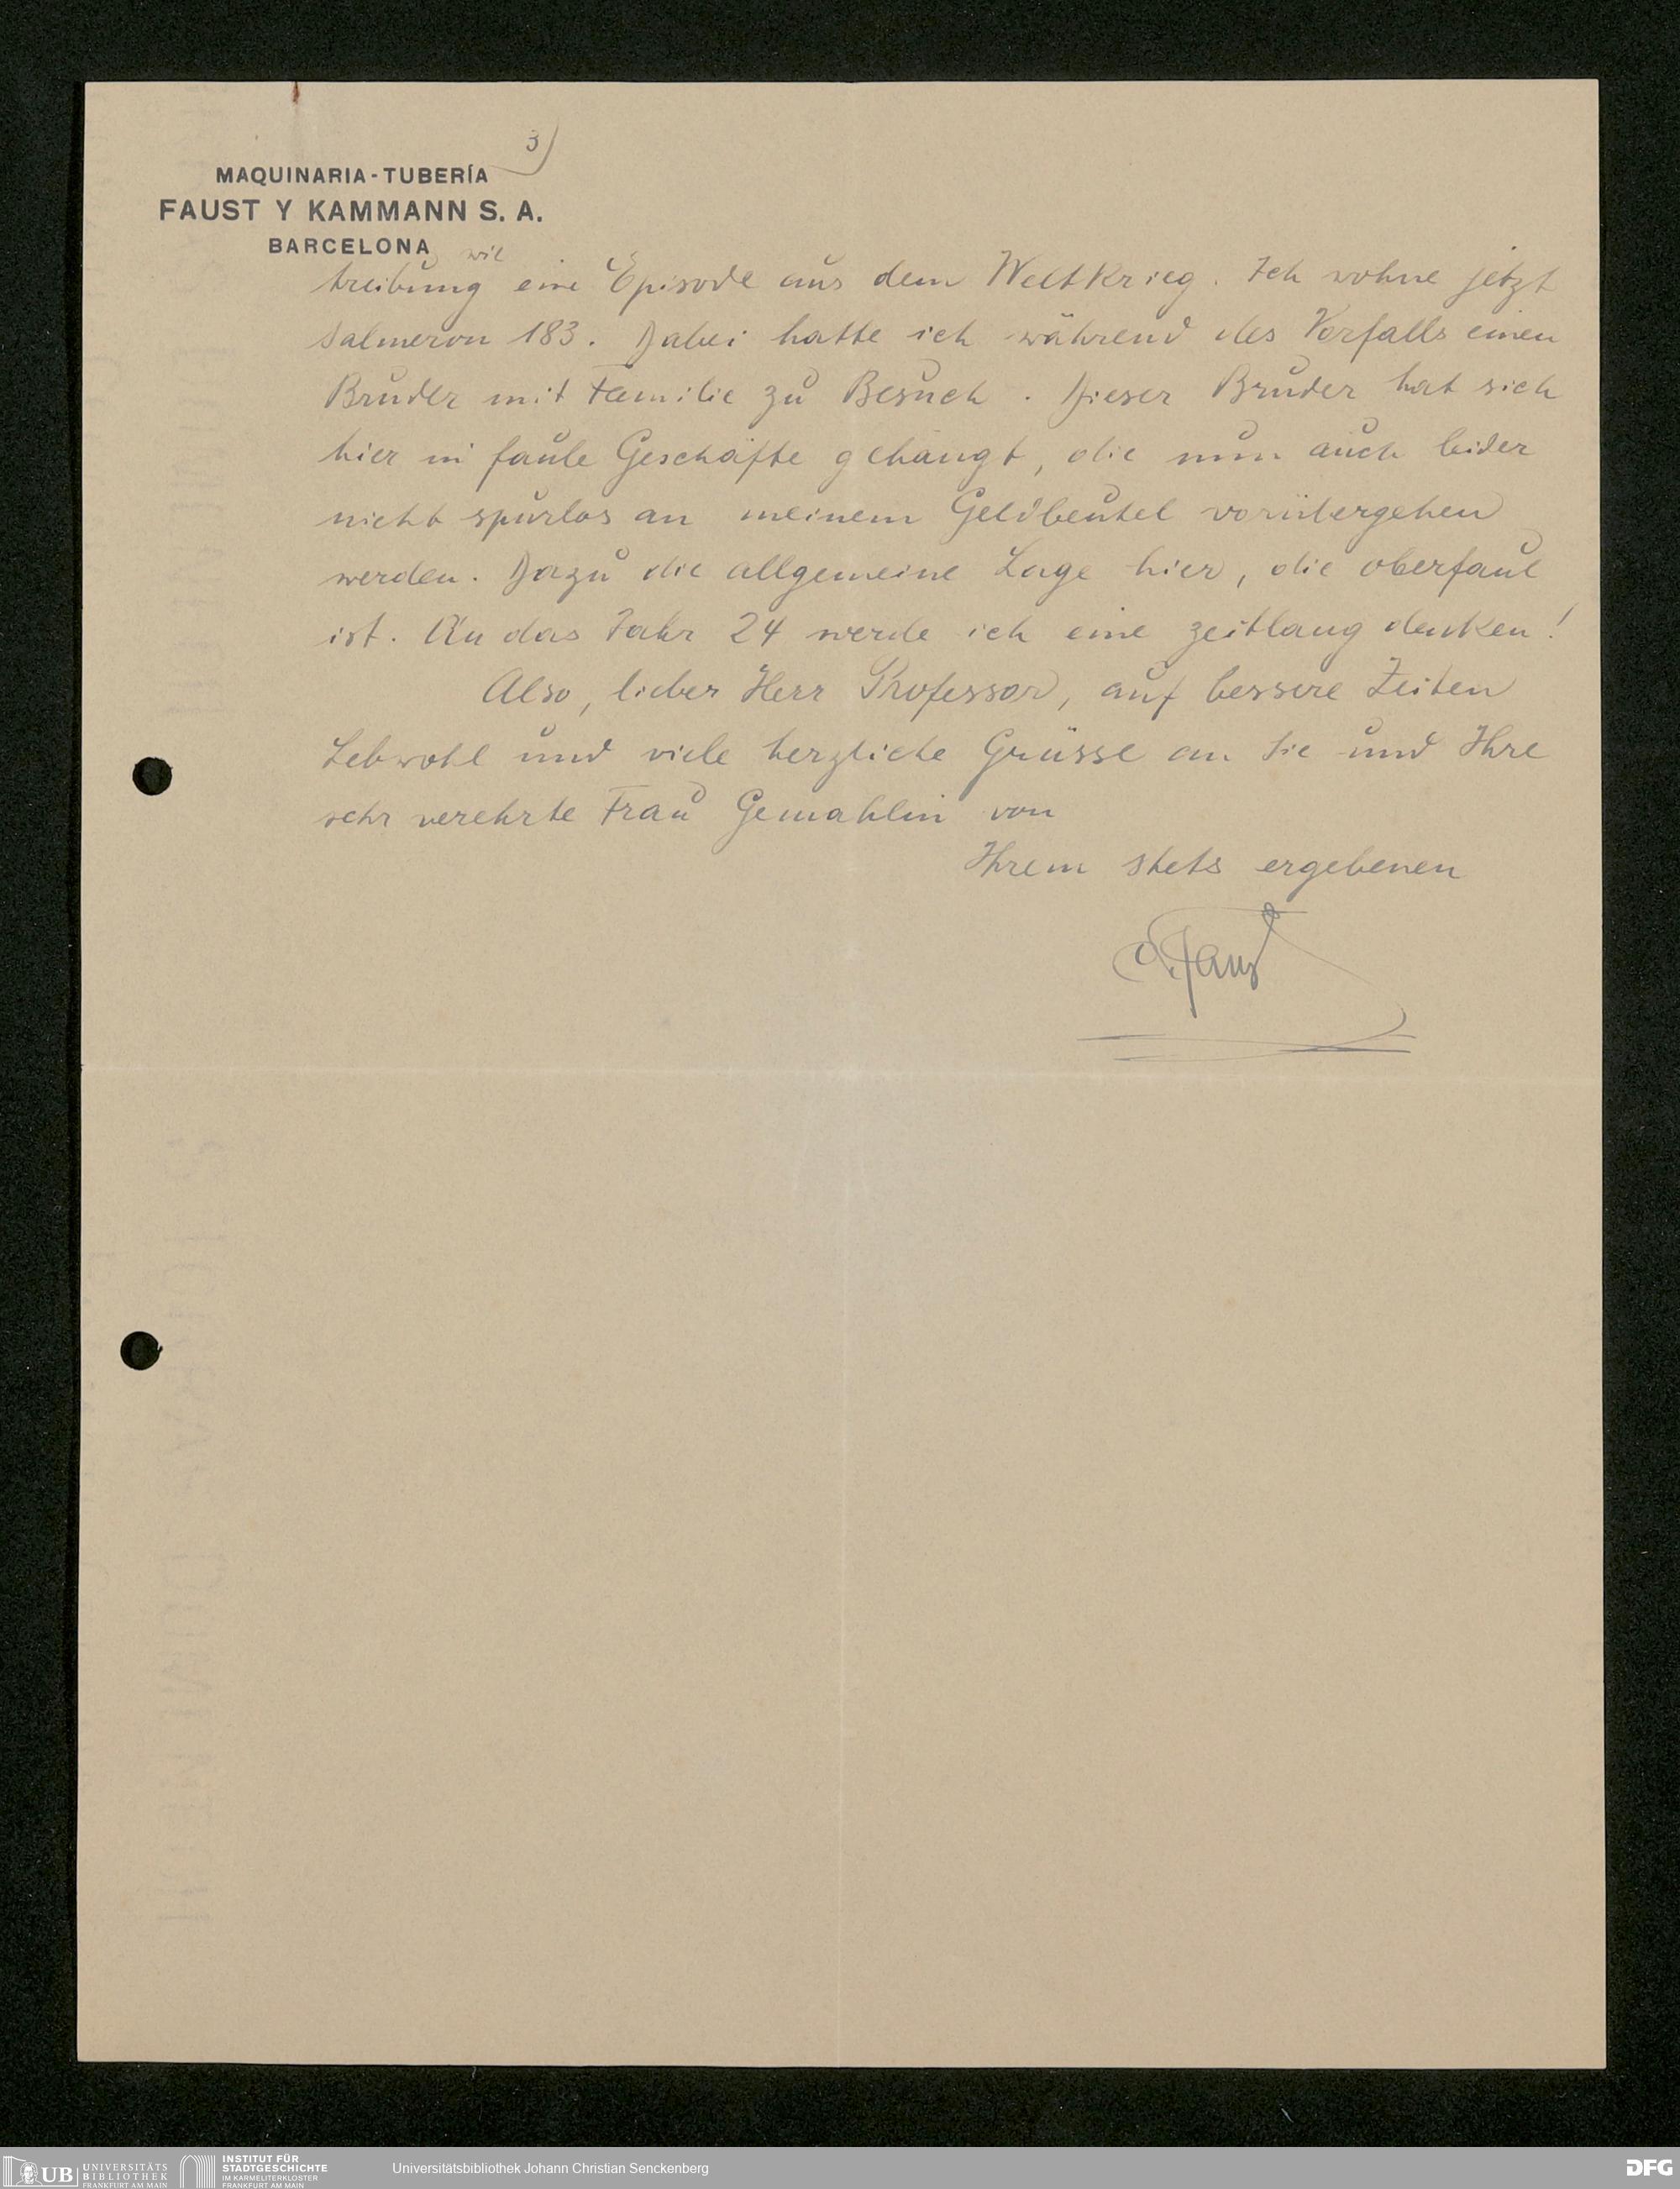 3)
MAQUINARIA-TUBERÍA
FAUST Y KAMMANN S. A.
BARCELONA
wie
treibung eine Episode aus dem Weltkrieg. Ich wohne jetzt
Salmeron 183. Dabei hatte ich während des Vorfalls einen
Bruder mit Familie zu Besuch. Dieser Bruder hat sich
hier in faule Geschäfte gehängt, die nun auch leider
nicht spurlos an meinem Geldbeutel vorübergehen
werden. Dazu die allgemeine Lage hier, die oberfaul
ist. An das Jahr 24 werde ich eine zeitlang denken!
Also, lieber Herr Professor, auf bessere Zeiten
Lebwohl und viele herzliche Grüsse an Sie und Ihre
sehr verehrte Frau Gemahlin von
Ihrem stets ergebenen
Faust
UB
UNIVERSITÄTS
BIBLIOTHEK
FRANKFURT AM MAIN
INSTITUT FÜR
STADTGESCHICHTE
IM KARMELITERKLOSTER
FRANKFURT AM MAIN
Universitätsbibliothek Johann Christian Senckenberg
DFG